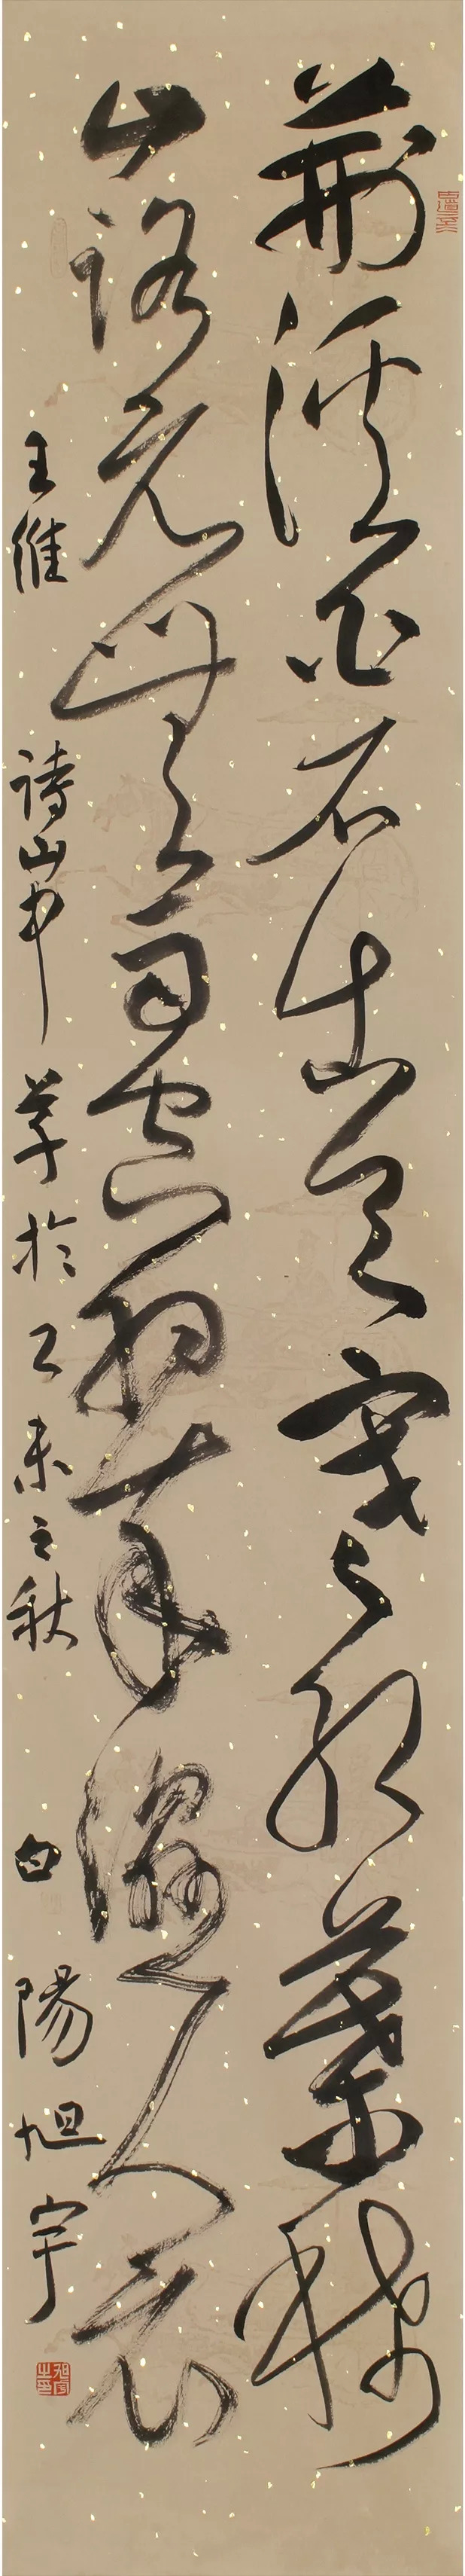 荊溪白石出天寒紅葉稀
山路元無雨空翠濕人衣
王維詩山中草於乙未之秋白陽旭宇
旭宇之印